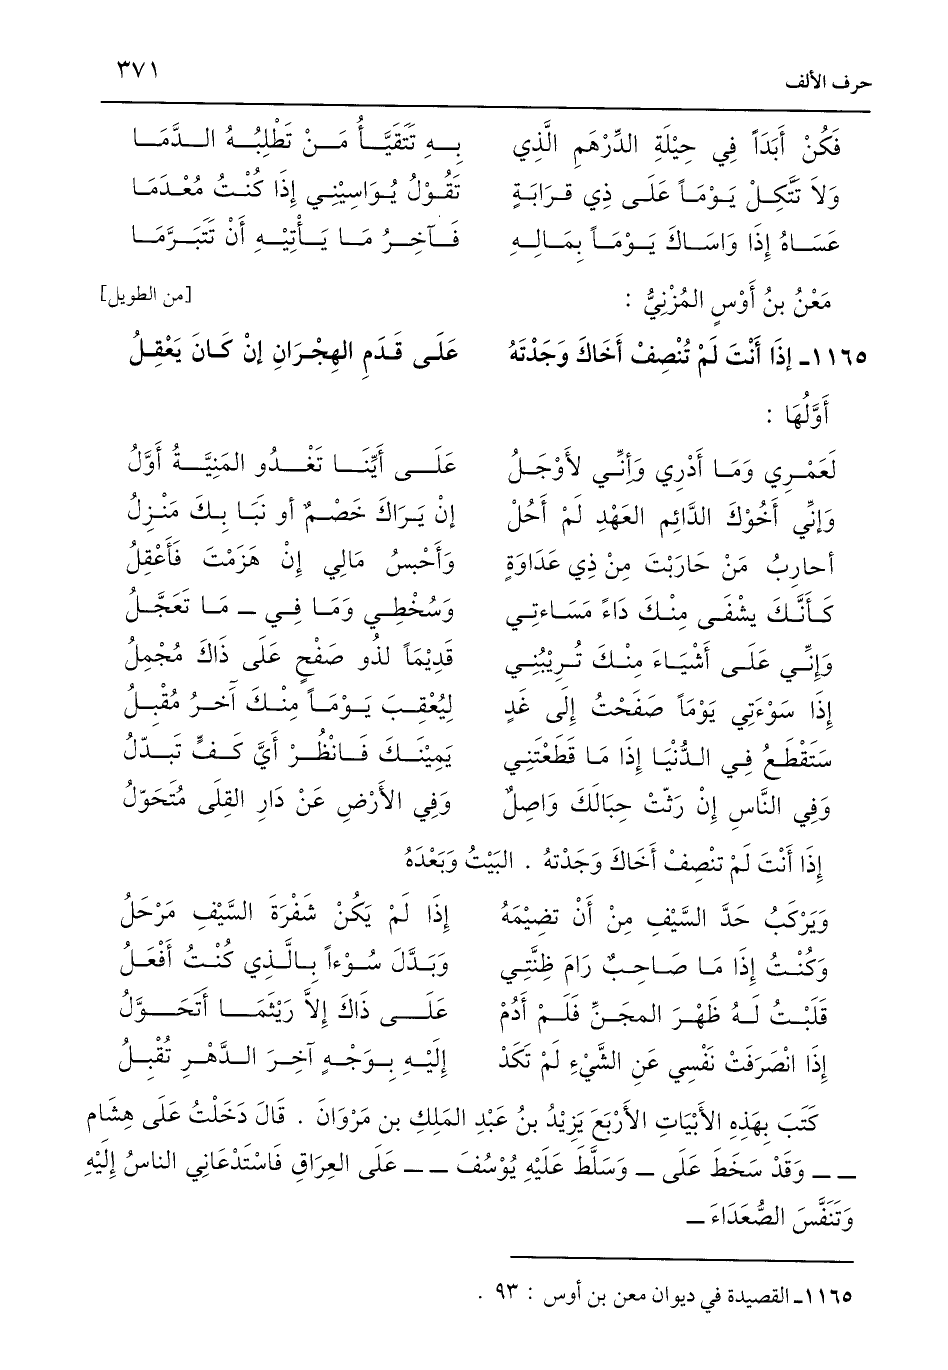 حرف الألف ٣٧١
فَكُنْ أَبَدَاً فِي حِيْلَةِ الدِّرْهَمِ الَّذِي بِهِ تَتَقَيَّأُ مَنْ تَطْلِبُهُ الدَّمَا
وَلاَ تَتَّكِلْ يَوْمَاً عَلَى ذِي قرَابَةٍ تَقُوْلُ يُوَاسِيْنِي إِذَا كُنْتُ مُعْدَمَا
عَسَاهُ إِذَا وَاسَاكَ يَوْمَاً بِمَالِهِ فَآخِرُ مَا يَأْتِيْهِ أَنْ تَتَبَرَّمَا
مَعْنُ بنُ أَوْسٍ المُزْنِيُّ : [من الطويل]
١١٦٥ـ إِذَا أَنْتَ لَمْ تُنْصِفْ أَخَاكَ وَجَدْتَهُ عَلَى قَدَمِ الهِجْرَانِ إِنْ كَانَ يَعْقِلُ
أَوَّلُهَا :
لَعَمْرِي وَمَا أَدْرِي وَأنِّي لأَوْجَلُ عَلَى أَيِّنَا تَغْدُو المَنِيَّةُ أَوَّلُ
وَإِنِّي أَخُوْكَ الدَّائِمِ العَهْدِ لَمْ أَحُلْ إِنْ يَرَاكَ خَصْمٌ أو نَبَا بِكَ مَنْزِلُ
أحارِبُ مَنْ حَارَبْتَ مِنْ ذِي عَدَاوَةٍ وَأَحْبِسُ مَالِي إِنْ هَزَمْتَ فَأَعْقِلُ
كَأَنَّكَ يشْفَى مِنْكَ دَاءً مَسَاءتِي وَسُخْطِي وَمَا فِي ــ مَا تَعَجَّلُ
وَإِنِّي عَلَى أَشْيَاءَ مِنْكَ تُرِيْبُنِي قَدِيْمَاً لذُو صَفْحٍ عَلَى ذَاكَ مُجْمِلُ
إِذَا سَوْءَتِي يَوْمَاً صَفَحْتُ إِلَى غَدٍ لِيُعْقِبَ يَوْمَاً مِنْكَ آخَرُ مُقْبِلُ
سَتَقْطَعُ فِي الدُّنْيَا إِذَا مَا قَطَعْتَنِي يَمِيْنَكَ فَانْظُرْ أَيَّ كَفٍّ تَبدّلُ
وَفِي النَّاسِ إِنْ رَثَّتْ حِبَالَكَ وَاصِلٌ وَفِي الأَرْضِ عَنْ دَارِ القِلَى مُتَحَوّلُ
إِذَا أَنْتَ لَمْ تنْصِفْ أَخَاكَ وَجَدْتهُ . البَيْتُ وَبَعْدَهُ
وَيَرْكَبُ حَدَّ السَّيْفِ مِنْ أَنْ تضِيْمَهُ إِذَا لَمْ يَكُنْ شَفْرَةَ السَّيْفِ مَزْحَلُ
وَكُنْتُ إِذَا مَا صَاحِبٌ رَامَ ظِنَّتِي وَبَدَّلَ سُوْءاً بِالَّذِي كُنْتُ أَفْعَلُ
قَلَبْتُ لَهُ ظَهْرَ المجَنِّ فَلَمْ أَدُمْ عَلَى ذَاكَ إِلاَّ رَيْثَمَا أَتَحَوَّلُ
إِذَا انْصَرَفَتْ نَفْسِي عَنِ الشَّيْءِ لَمْ تَكَدْ إِلَيْهِ بِوَجْهٍ آخِرَ الدَّهْرِ تُقْبِلُ
كَتَبَ بِهَذِهِ الأَبْيَاتِ الأَرْبَعَ يَزِيْدُ بنُ عَبْدِ المَلِكِ بن مَرْوَانَ . قَالَ دَخَلْتُ عَلَى هِشَامِ
ــ ــ وَقَدْ سَخَطَ عَلَى ــ وَسَلَّطَ عَلَيْهِ يُوْسُفَ ــ ــ عَلَى العِرَاقِ فَاسْتَدْعَانِي الناسُ إِلَيْهِ
وَتَنَفَّسَ الصُّعَدَاءَ ــ
١١٦٥ـ القصيدة في ديوان معن بن أوس : ٩٣ .